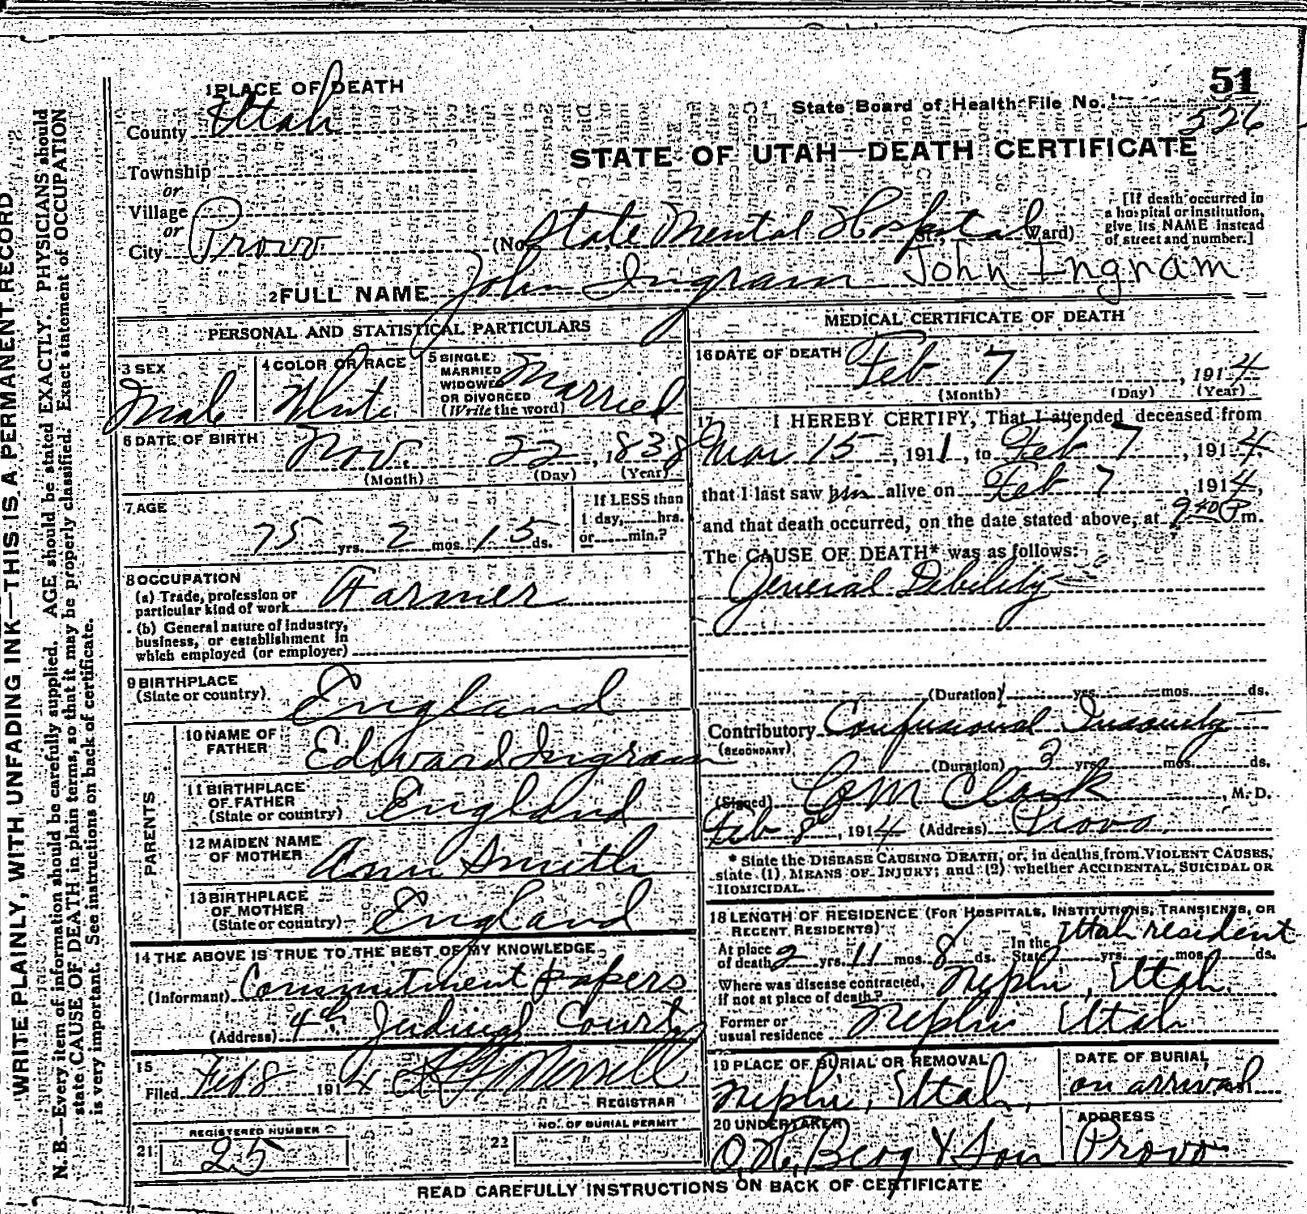 WRITE PLAINLY, WITH UNFADING INK—THIS IS A PERMANENT RECORD
N. B.—Every item of information should be carefully supplied. AGE should be stated EXACTLY. PHYSICIANS should
state CAUSE OF DEATH in plain terms, so that it may be properly classified. Exact statement of OCCUPATION
is very important. See instructions on back of certificate.
51
1 PLACE OF DEATH
State Board of Health File No.
326
County Utah
STATE OF UTAH—DEATH CERTIFICATE
Township
or
Village
or
City Provo
(No. State Mental Hospital St. Ward)
[If death occurred in
a hospital or institution,
give its NAME instead
of street and number.]
2 FULL NAME John Ingram John Ingram
PERSONAL AND STATISTICAL PARTICULARS
3 SEX
Male
4 COLOR OR RACE
White
5 SINGLE
MARRIED
WIDOWED
OR DIVORCED
(Write the word)
Married
6 DATE OF BIRTH
Nov. 22, 1838
(Month) (Day) (Year)
7 AGE
75 yrs. 2 mos. 15 ds.
If LESS than
1 day, hrs.
or min.?
8 OCCUPATION
(a) Trade, profession or
particular kind of work
Farmer
(b) General nature of industry,
business, or establishment in
which employed (or employer)
9 BIRTHPLACE
(State or country)
England
PARENTS
10 NAME OF
FATHER
Edward Ingram
11 BIRTHPLACE
OF FATHER
(State or country)
England
12 MAIDEN NAME
OF MOTHER
Ann Smith
13 BIRTHPLACE
OF MOTHER
(State or country)
England
14 THE ABOVE IS TRUE TO THE BEST OF MY KNOWLEDGE
(Informant) Commitment papers
(Address) 4th Judicial Court
15
Filed Feb 8 1914 Merrell
REGISTRAR
21 REGISTERED NUMBER
25
22 NO. OF BURIAL PERMIT
MEDICAL CERTIFICATE OF DEATH
16 DATE OF DEATH
Feb 7, 1914
(Month) (Day) (Year)
17 I HEREBY CERTIFY, That I attended deceased from
Mar 15, 1911, to Feb 7, 1914
that I last saw him alive on Feb 7, 1914,
and that death occurred, on the date stated above, at 9 40 P m.
The CAUSE OF DEATH* was as follows:
General Debility
(Duration) yrs. mos. ds.
Contributory Confusional Insanity
(SECONDARY)
(Duration) 3 yrs. mos. ds.
(Signed) Clark, M. D.
Feb 8, 1914 (Address) Provo.
* State the DISEASE CAUSING DEATH, or, in deaths from VIOLENT CAUSES,
state (1) MEANS OF INJURY; and (2) whether ACCIDENTAL, SUICIDAL OR
HOMICIDAL.
18 LENGTH OF RESIDENCE (FOR HOSPITALS, INSTITUTIONS, TRANSIENTS, OR
RECENT RESIDENTS)
At place
of death 2 yrs. 11 mos. 8 ds.
In the
State yrs. mos. ds.
Utah resident
Where was disease contracted,
if not at place of death?
Nephi, Utah.
Former or
usual residence
Nephi Utah
19 PLACE OF BURIAL OR REMOVAL
Nephi, Utah.
DATE OF BURIAL
on arrival
20 UNDERTAKER
O. H. Berg & Son
ADDRESS
Provo
READ CAREFULLY INSTRUCTIONS ON BACK OF CERTIFICATE